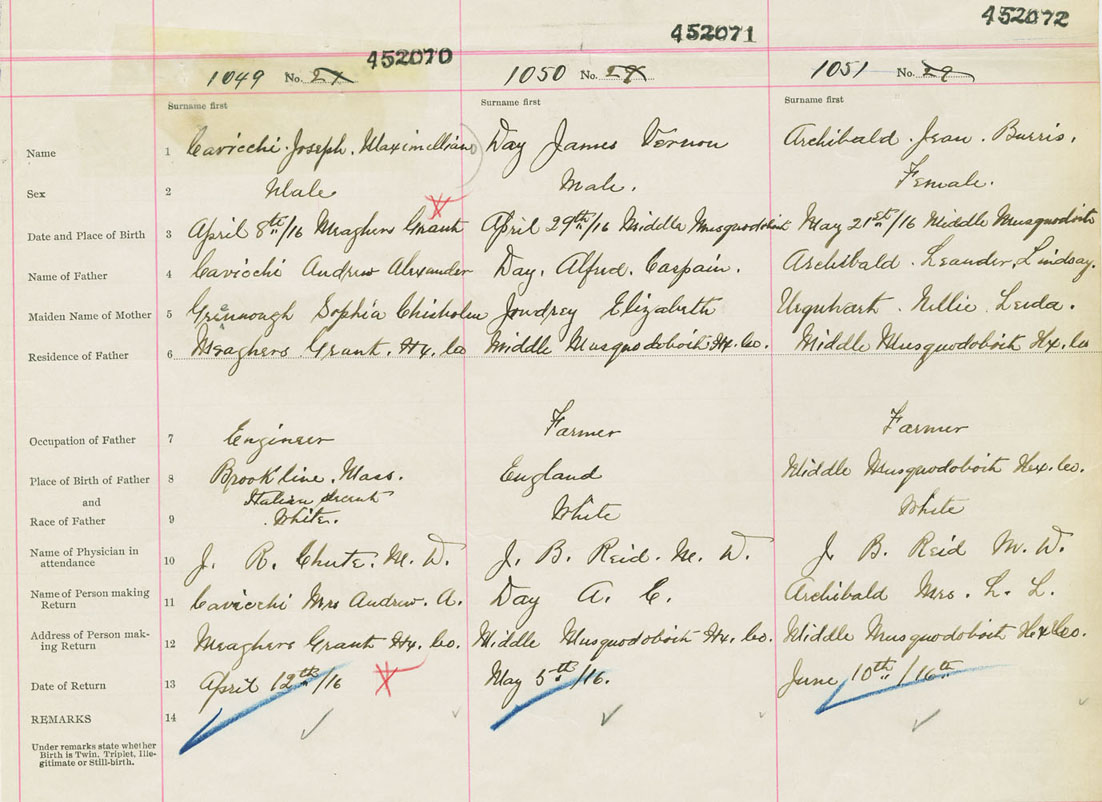 452070 452071 452072
1049 No. 1050 No. 1051 No. 29
Surname first Surname first Surname first
Name 1 Cavicchi Joseph. Maximilliano Day James Vernon Archibald Jean Burris.
Sex 2 Male Male. Female.
Date and Place of Birth 3 April 8th/16 Meaghers Grant April 29th/16 Middle Musquodoboit May 21st/16 Middle Musquodoboit
Name of Father 4 Cavicchi Andrew Alexander Day. Alfred. Caspain. Archibald. Leander. Lindsay.
Maiden Name of Mother 5 Greenough Sophia Chisholm Joudrey Elizabeth Urquhart. Nellie Leida.
Residence of Father 6 Meaghers Grant. Hx. Co Middle Musquodoboit Hx. Co. Middle Musquodoboit Hx. Co
Occupation of Father 7 Engineer Farmer Farmer
Place of Birth of Father 8 Brookline. Mass. England Middle Musquodoboit Hx. Co.
and Italian
Race of Father 9 White. White White
Name of Physician in attendance 10 J. R. Chute. M. D. J. B. Reid. M. D. J. B. Reid M. D.
Name of Person making Return 11 Cavicchi Mrs Andrew. A. Day A. C. Archibald Mrs. L. L.
Address of Person mak-ing Return 12 Meaghers Grant Hx. Co. Middle Musquodoboit Hx. Co. Middle Musquodoboit Hx Co.
Date of Return 13 April 12th/16 May 5th/16. June 10th/16th
REMARKS 14
Under remarks state whether
Birth is Twin, Triplet, Ille-
gitimate or Still-birth.